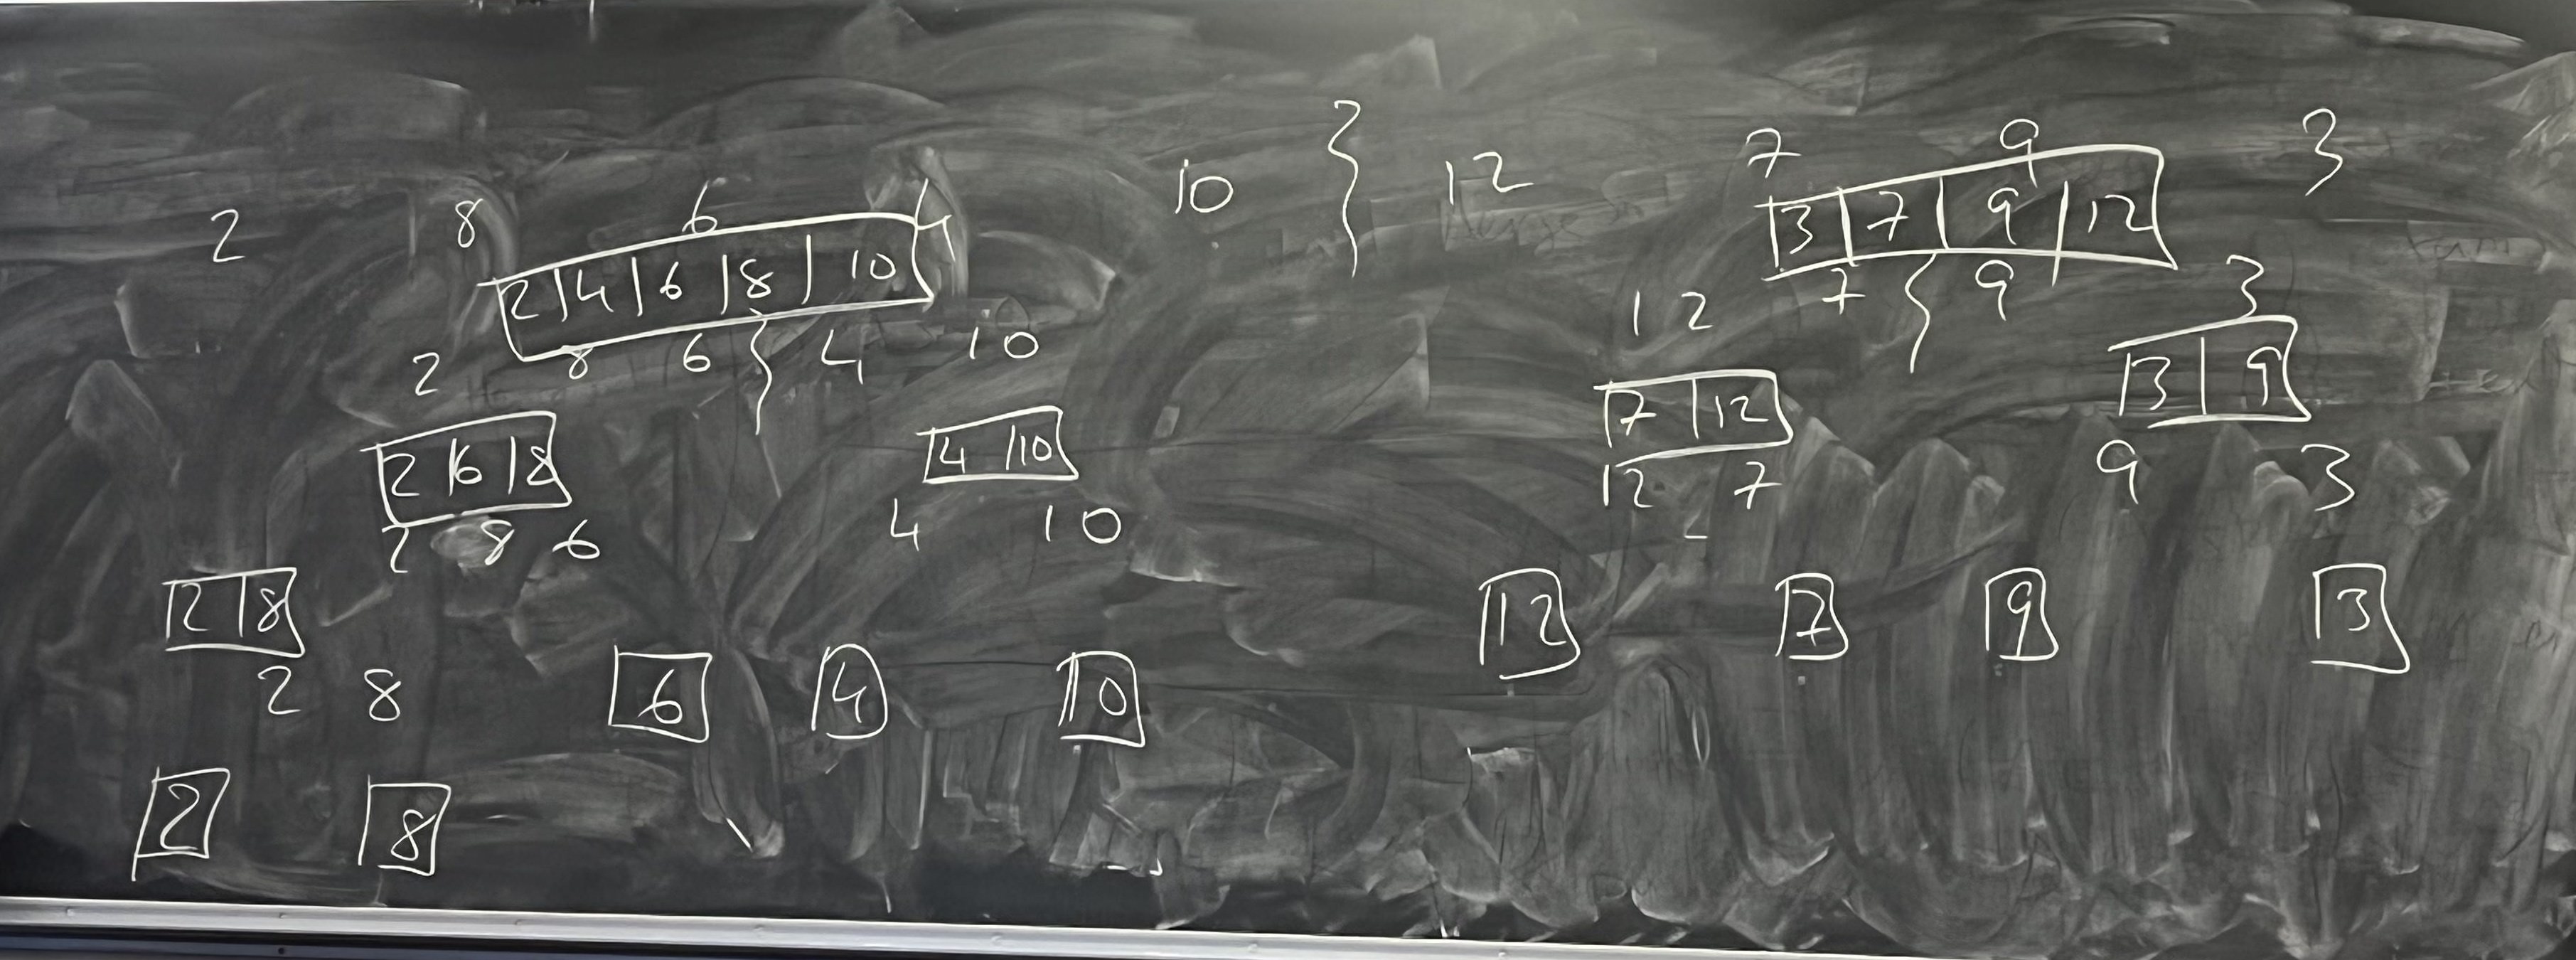 2 8 6 4 10 } 12 7 9 3
2 | 4 | 6 | 8 | 10
3 | 7 | 9 | 12
2 8 6 } 4 10
12 7 } 9 3
2 | 6 | 8
4 | 10
7 | 12
3 | 9
2 8 6
4 10
12 7
9 3
2 | 8
12 7 9 3
2 8
6 4 10
2 8